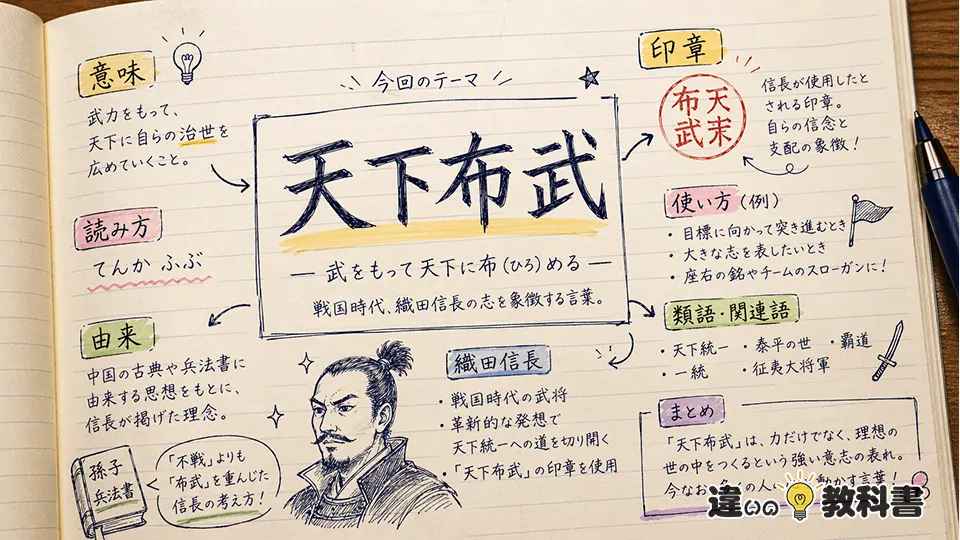 意味
武力をもって、
天下に自らの治世を
広めていくこと。
読み方
てんか ふぶ
由来
中国の古典や兵法書に
由来する思想をもとに、
信長が掲げた理念。
孫子
兵法書
「不戦」よりも
「布武」を重んじた
信長の考え方!
今回のテーマ
天下布武
― 武をもって天下に布(ひろ)める ―
戦国時代、織田信長の志を象徴する言葉。
織田信長
・戦国時代の武将
・革新的な発想で
天下統一への道を切り開く
・「天下布武」の印章を使用
印章
布天
武
信長が使用したと
される印章。
自らの信念と
支配の象徴!
使い方(例)
・目標に向かって突き進むとき
・大きな志を表したいとき
・座右の銘やチームのスローガンに!
類語・関連語
・天下統一 ・泰平の世 ・覇道
・一統 ・征夷大将軍
まとめ
「天下布武」は、力だけでなく、理想の
世の中をつくるという強い意志の表れ。
今なお の人 動かす言葉!
違いの教科書